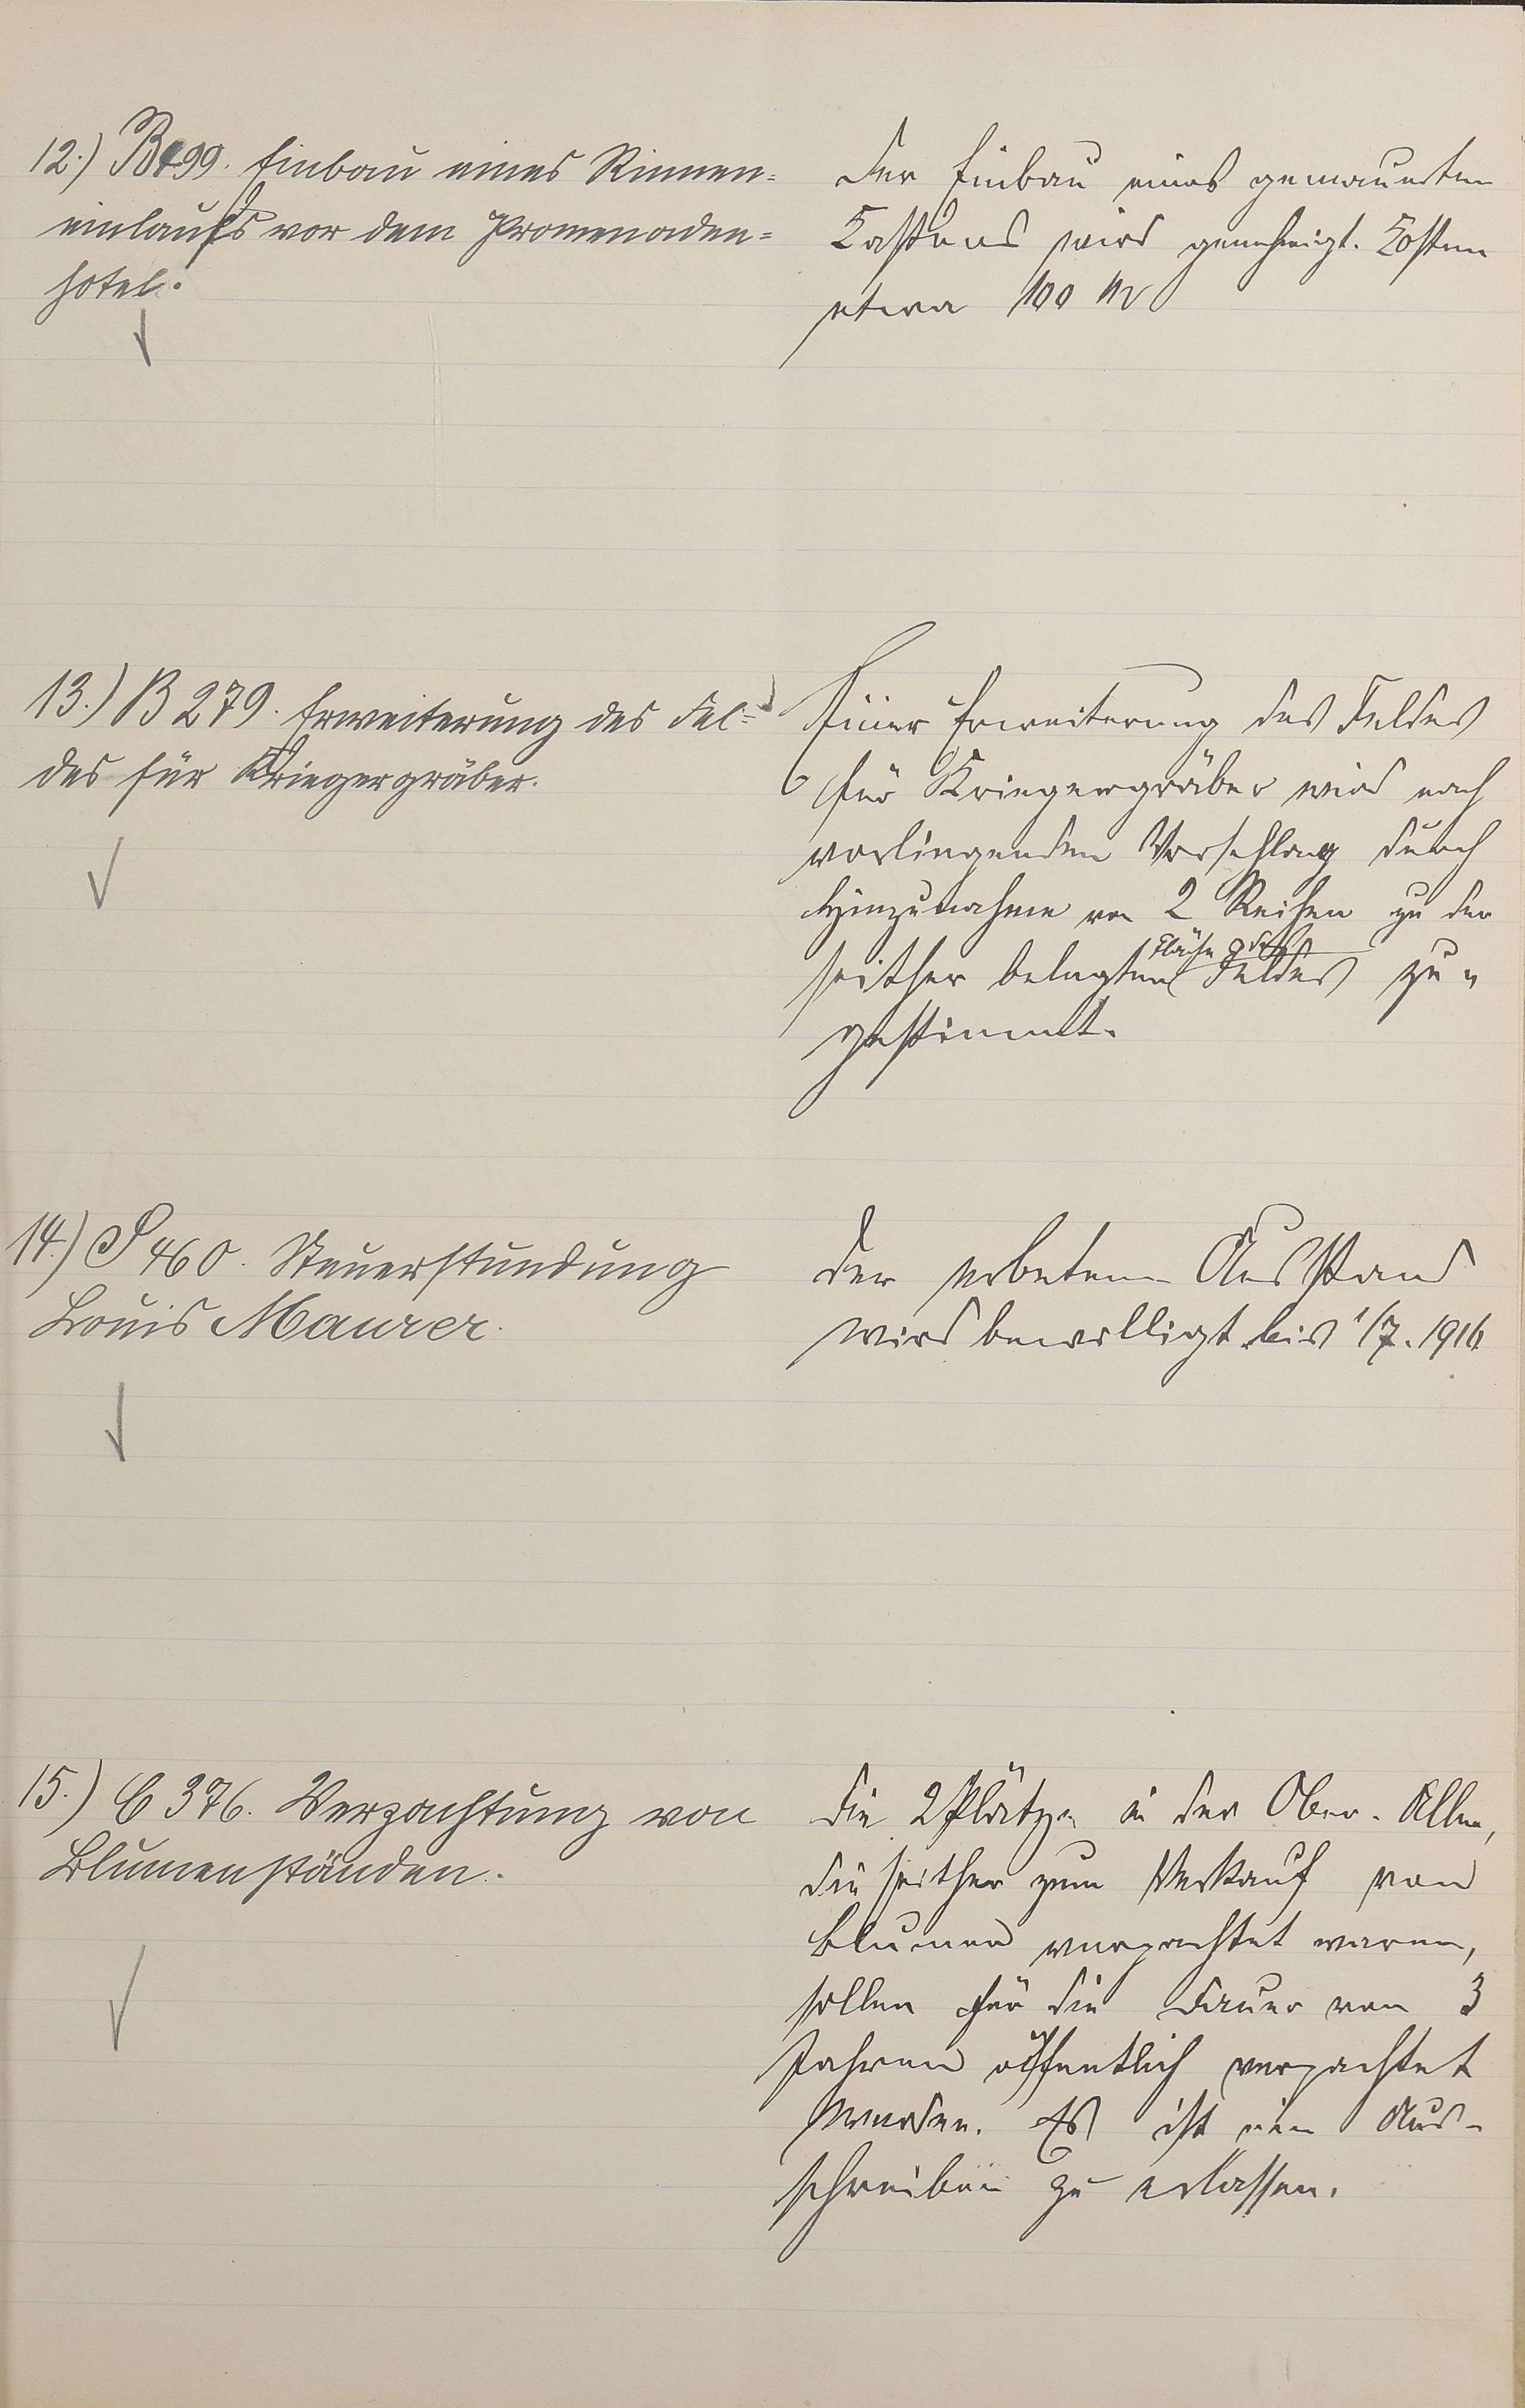 12.) B 499. Einbau eines Rinnen-
einlaufs vor dem Promenaden-
hotel.
Der Einbau eines gemauerten
Kastens wird genehmigt. Kosten
etwa 100 M
13.) B 279. Erweiterung des Fel-
des für Kriegergräber.
Einer Erweiterung des Feldes
für Kriegergräber wird nach
vorliegendem Vorschlag durch
Hinzunahme von 2 Reihen zu der
seither belegten Fläche des Feldes zu-
gestimmt.
14.) S 460. Steuerstundung
Louis Maurer.
Der erbetene Ausstand
wird bewilligt bis 1/7. 1916
15.) C 376. Verpachtung von
Blumenständen.
Die 2 Plätze in der Ober-Allee,
die seither zum Verkauf von
Blumen verpachtet waren,
sollen für die Dauer von 3
Jahren öffentlich verpachtet
werden. Es ist ein Aus-
schreiben zu erlassen.